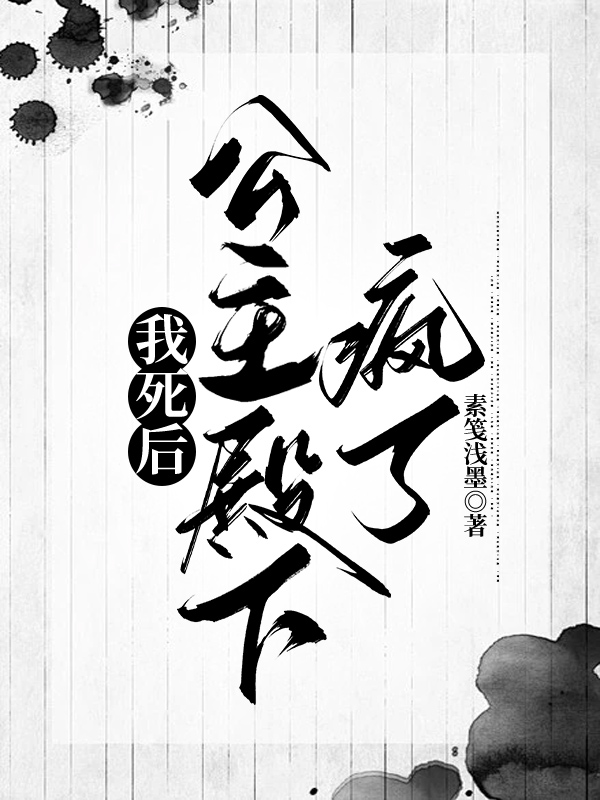 我死后
公主殿下
疯了
素笺浅墨◎著